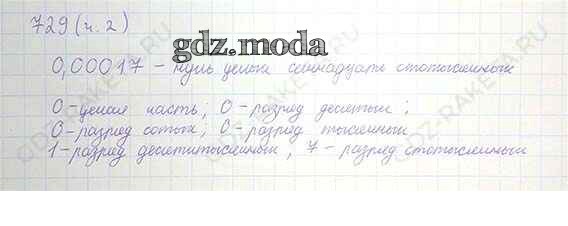 729 (ч. 2)
gdz.moda
0,00017 – нуль целых семнадцать стотысячных
0 – целая часть; 0 – разряд десятых;
0 – разряд сотых; 0 – разряд тысячных
1 – разряд десятитысячных, 7 – разряд стотысячных
GDZ-RAKETA.RU
GDZ-RAKETA.RU